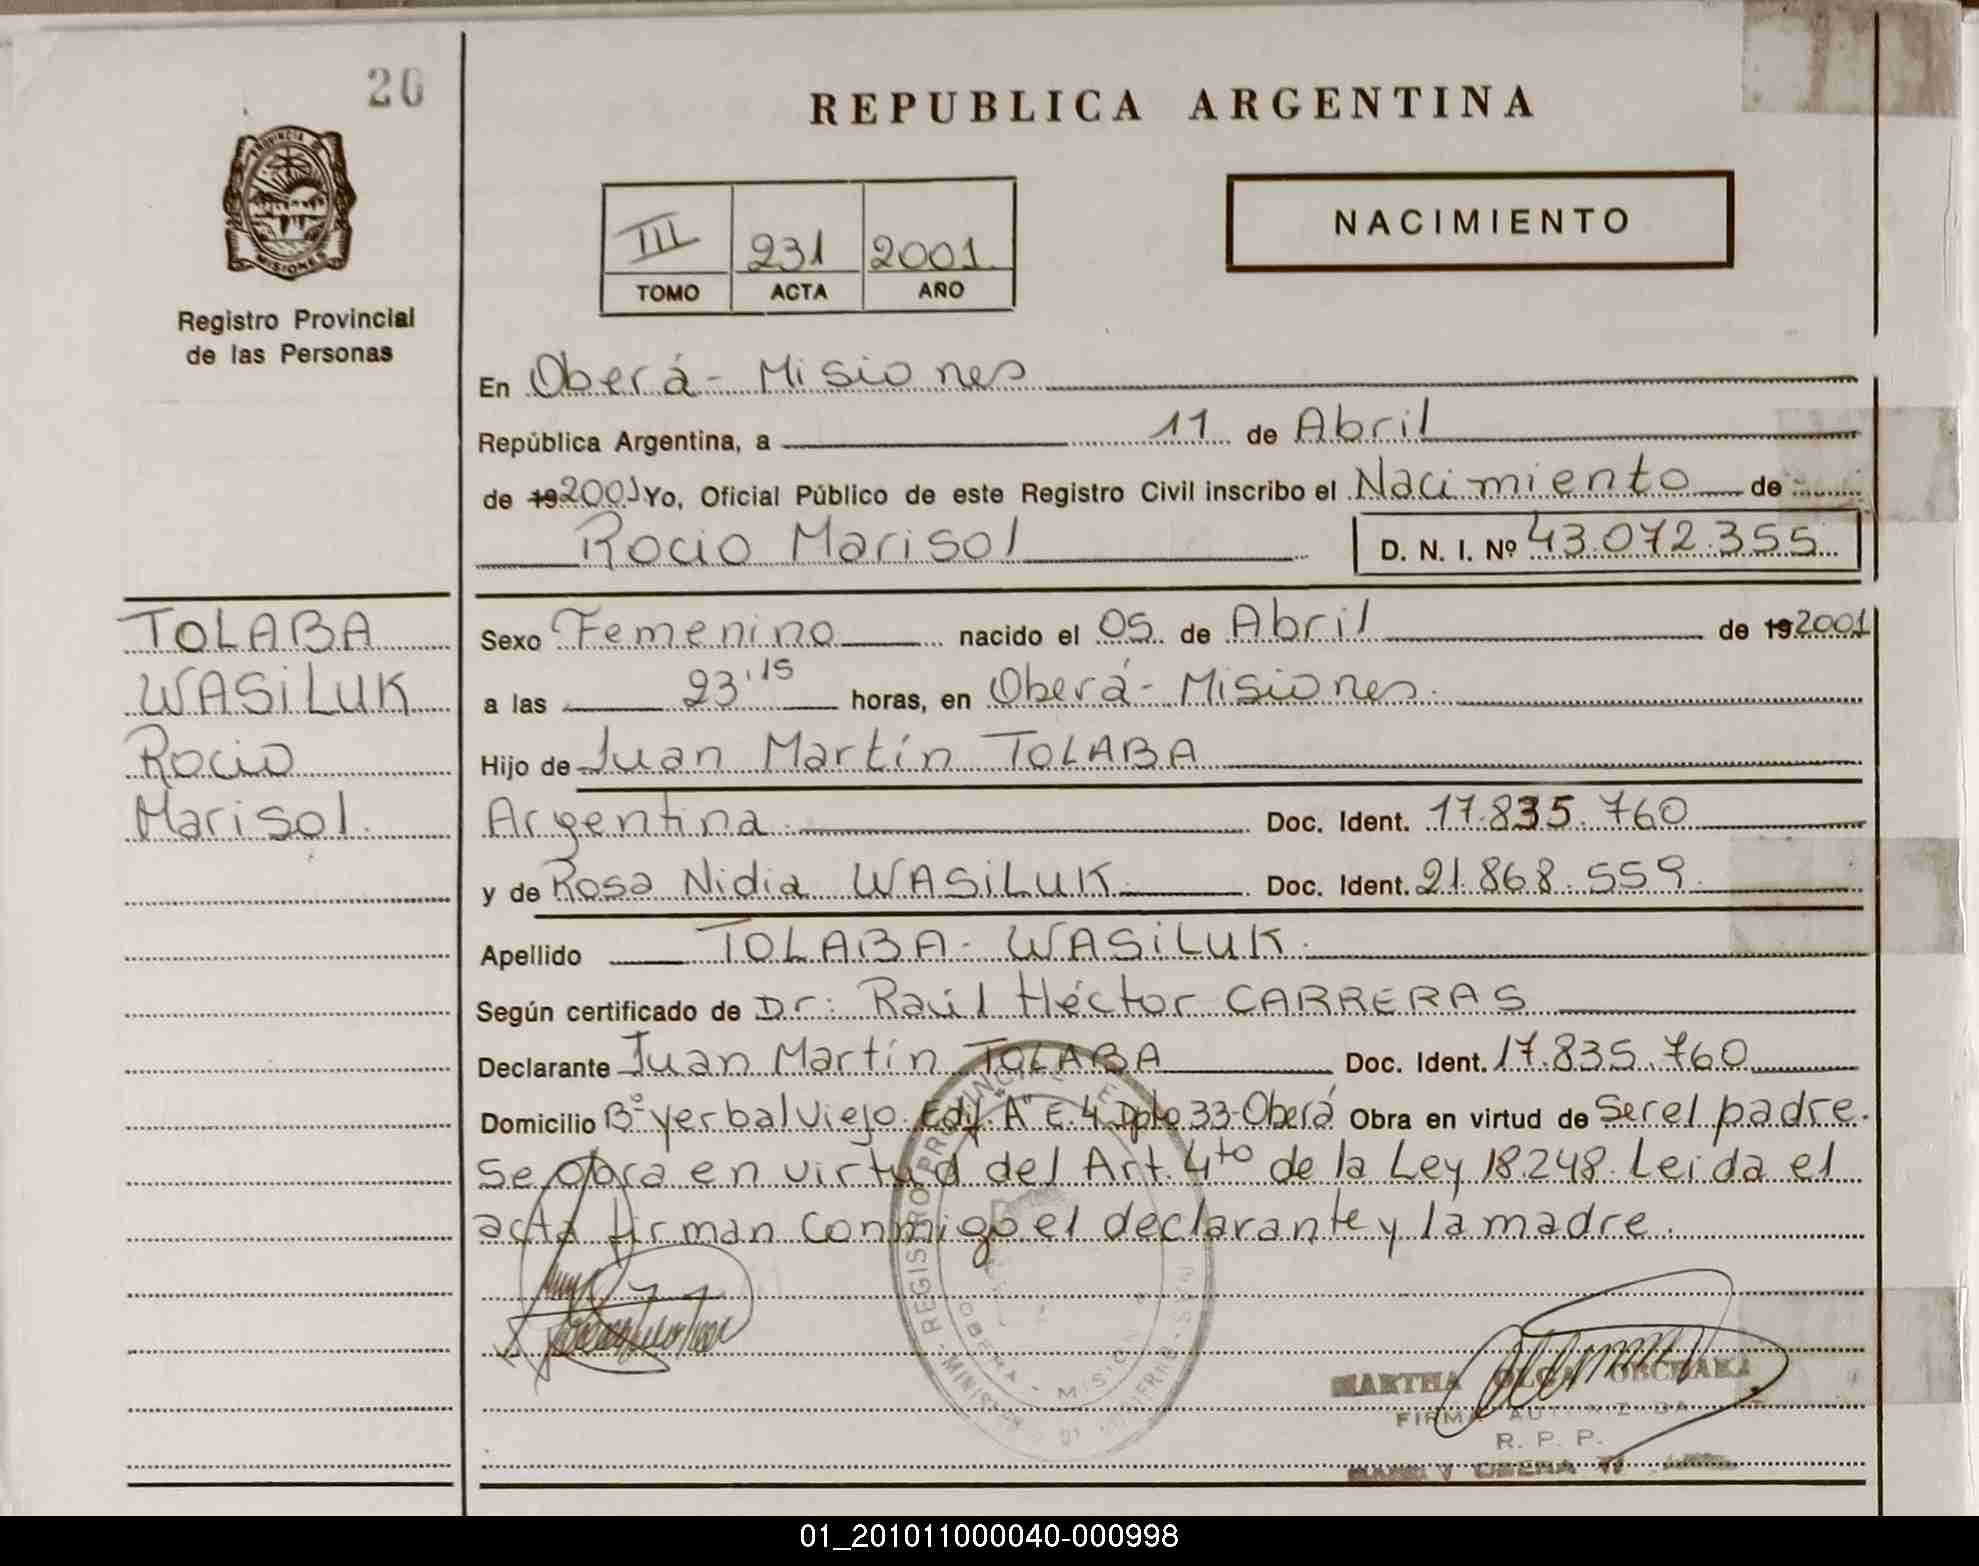 20
REPUBLICA ARGENTINA
PROVINCIA DE
MISIONES
Registro Provincial
de las Personas
III 231 2001
TOMO ACTA AÑO
NACIMIENTO
En Oberá - Misiones
República Argentina, a 11 de Abril
de 19 2001 Yo, Oficial Público de este Registro Civil inscribo el Nacimiento de
Rocio Marisol D. N. I. Nº 43.072.355
TOLABA
WASiLUK
Rocio
Marisol.
Sexo Femenino nacido el 05 de Abril de 19 2001
a las 23'15 horas, en Oberá - Misiones.
Hijo de Juan Martín TOLABA
Argentina Doc. Ident. 17.835.760
y de Rosa Nidia WASiLUK Doc. Ident. 21.868.559.
Apellido TOLABA - WASiLUK.
Según certificado de Dr: Raúl Héctor CARRERAS
Declarante Juan Martín TOLABA Doc. Ident. 17.835.760
Domicilio Bº Yerbal Viejo. Edif. "A" E. 4 Dpto 33-Oberá Obra en virtud de Ser el padre.
Se obra en virtud del Art. 4to de la Ley 18.248. Leida el
acta firman conmigo el declarante y la madre.
REGISTRO PROVINCIAL DE
OBERA - MISIONES
MARTHA OLGA
FIRMA AUTORIZADA
R. P. P.
OBERA
01_201011000040-000998